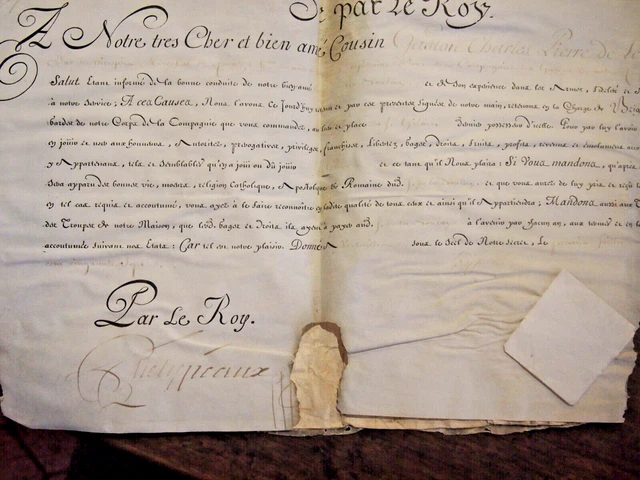 De par Le Roy.
A Notre tres Cher et bien amé Cousin
Salut Etant informé de la bonne conduite de notre bien amé et de Son experience dans les Armes,
à notre Service; A ces Causes, Nous l'avons ce Jourd'huy par ces presentes signées de notre main, retenu en la Charge de
Gardes de notre Corps de la Compagnie que vous commandez, au lieu et place dernier possesseur d'icelle. Pour par luy l'avoir
en joüir et user aux honneurs, Autoritez, prerogatives, privileges, franchises, Libertez, gages, droits, fruits, profits, revenus et emolumens
y Appartenans, tels et semblables qu'en a joui ou dû joüir et ce tant qu'il Nous plaira: Si Vous mandons, qu'aprés
Sera apparu des bonnes vie, moeurs, religion Catholique, Apostolique et Romaine dud. et que vous aurez de luy pris et reçû
en tel cas requis et accoutumé, vous ayez à le faire reconnoître en ladite qualité de tous ceux et ainsi qu'il Appartiendra; Mandons aussi aux
des Troupes de notre Maison, que lesd. gages et droits ils ayent à payer aud. à l'avenir par chacun an, aux termes et en la
accoutumée suivant nos Etats: Car tel est notre plaisir. Donné sous le Scel de Notre secret, Le
Par Le Roy.
Phelypeaux